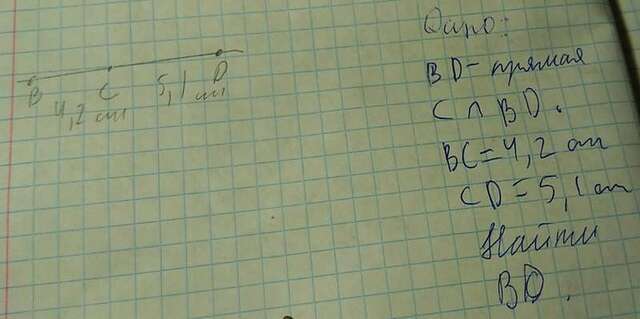 B C D
4,2 см 5,1 см
Дано:
BD - прямая
C ∩ BD.
BC = 4,2 см
CD = 5,1 см
Найти
BD.